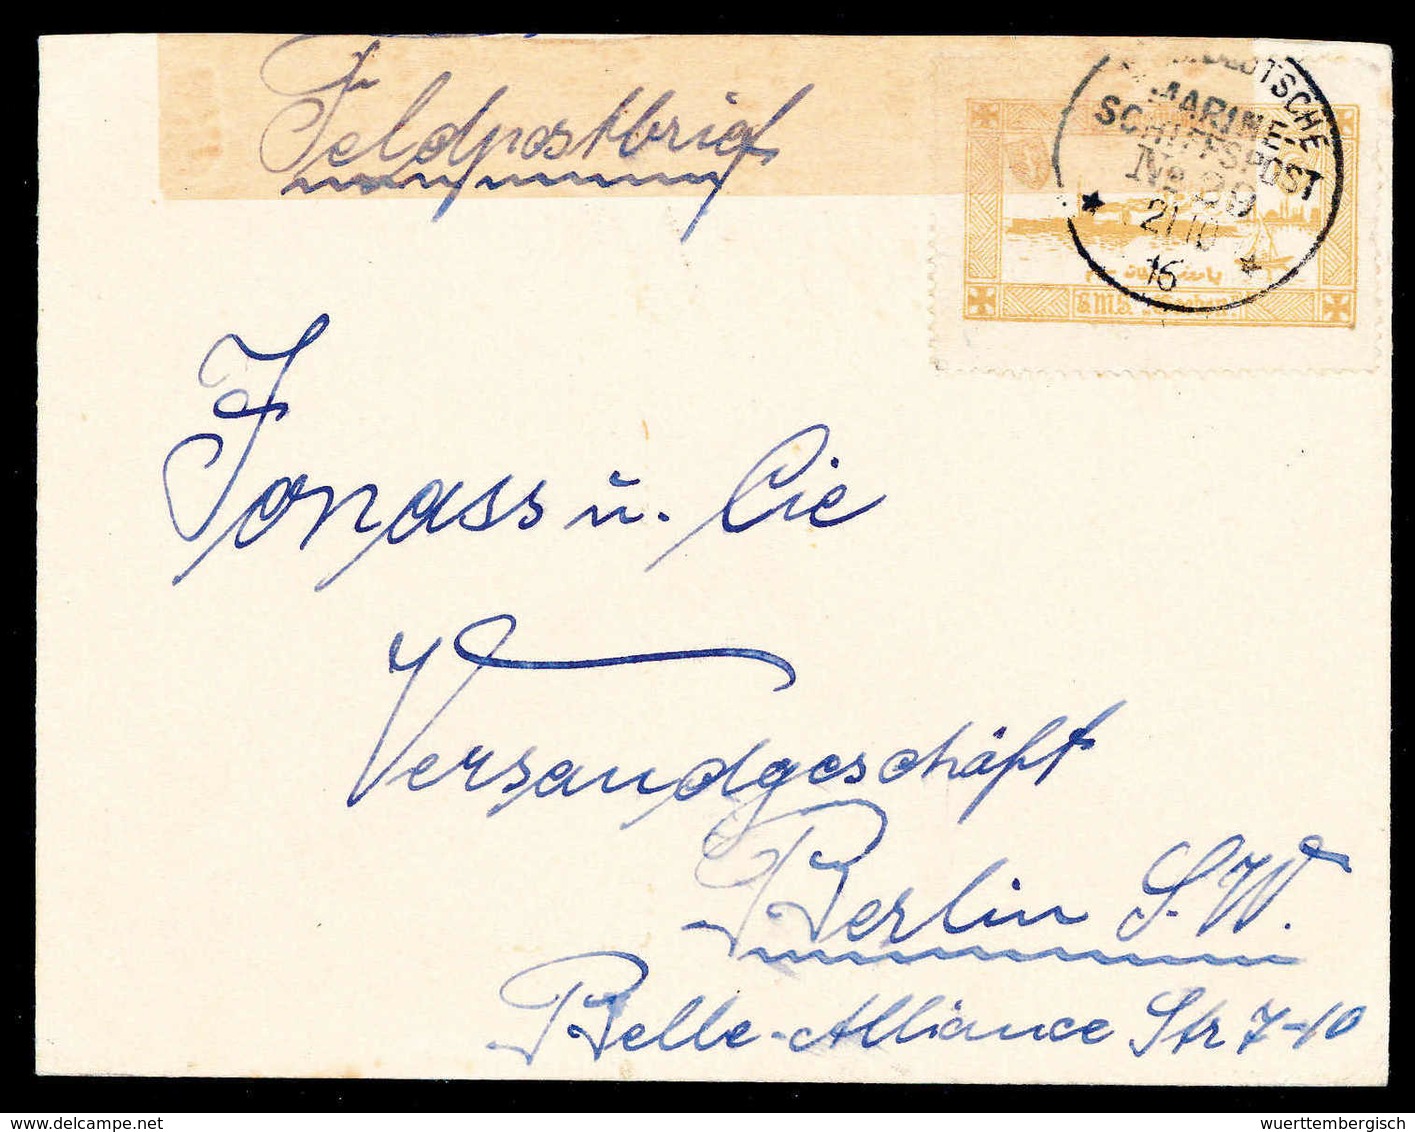 Feldpostbrief
DEUTSCHE
MARINE-
SCHIFFSPOST
No 39
21 10
16
S.M.S. Goeben
Jonass u. Cie
Versandgeschäft
Berlin S.W.
Belle-Alliance Str 7-10
wuerttembergisch